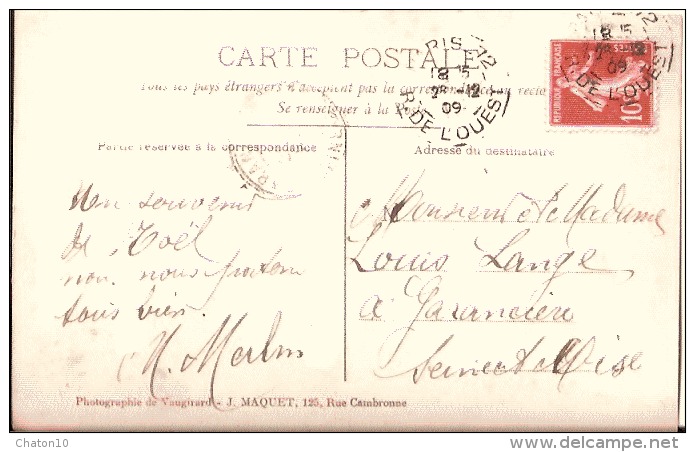 CARTE POSTALE
Tous les pays étrangers n'acceptent pas la correspondance au recto
Se renseigner à la Poste
Partie réservée à la correspondance
Adresse du destinataire
PARIS
18 15
2 - 12
09
R. DE L'OUEST
REPUBLIQUE FRANÇAISE
POSTES
10
souvenir
de Noël
nous nous portons
tous bien.
Monsieur et Madame
Louis Lange
à Garancière
Seine et Oise
Photographie de Vaugirard - J. MAQUET, 125, Rue Cambronne
Chaton10
http://www.delcampe.net